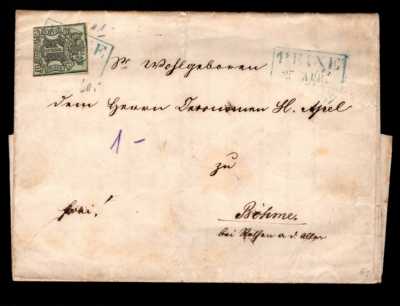 PEINE
Sr Wohlgeboren
dem Herrn Oeconomen H. Apel
1 -
zu
frei!
Böhme.
bei Rethem a. d. Aller